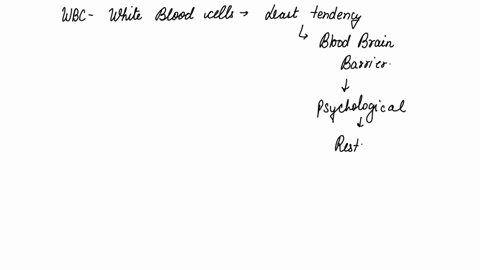 WBC- White Blood cells → Least tendency
↳ Blood Brain
Barrier.
↓
Psychological
↓
Rest.